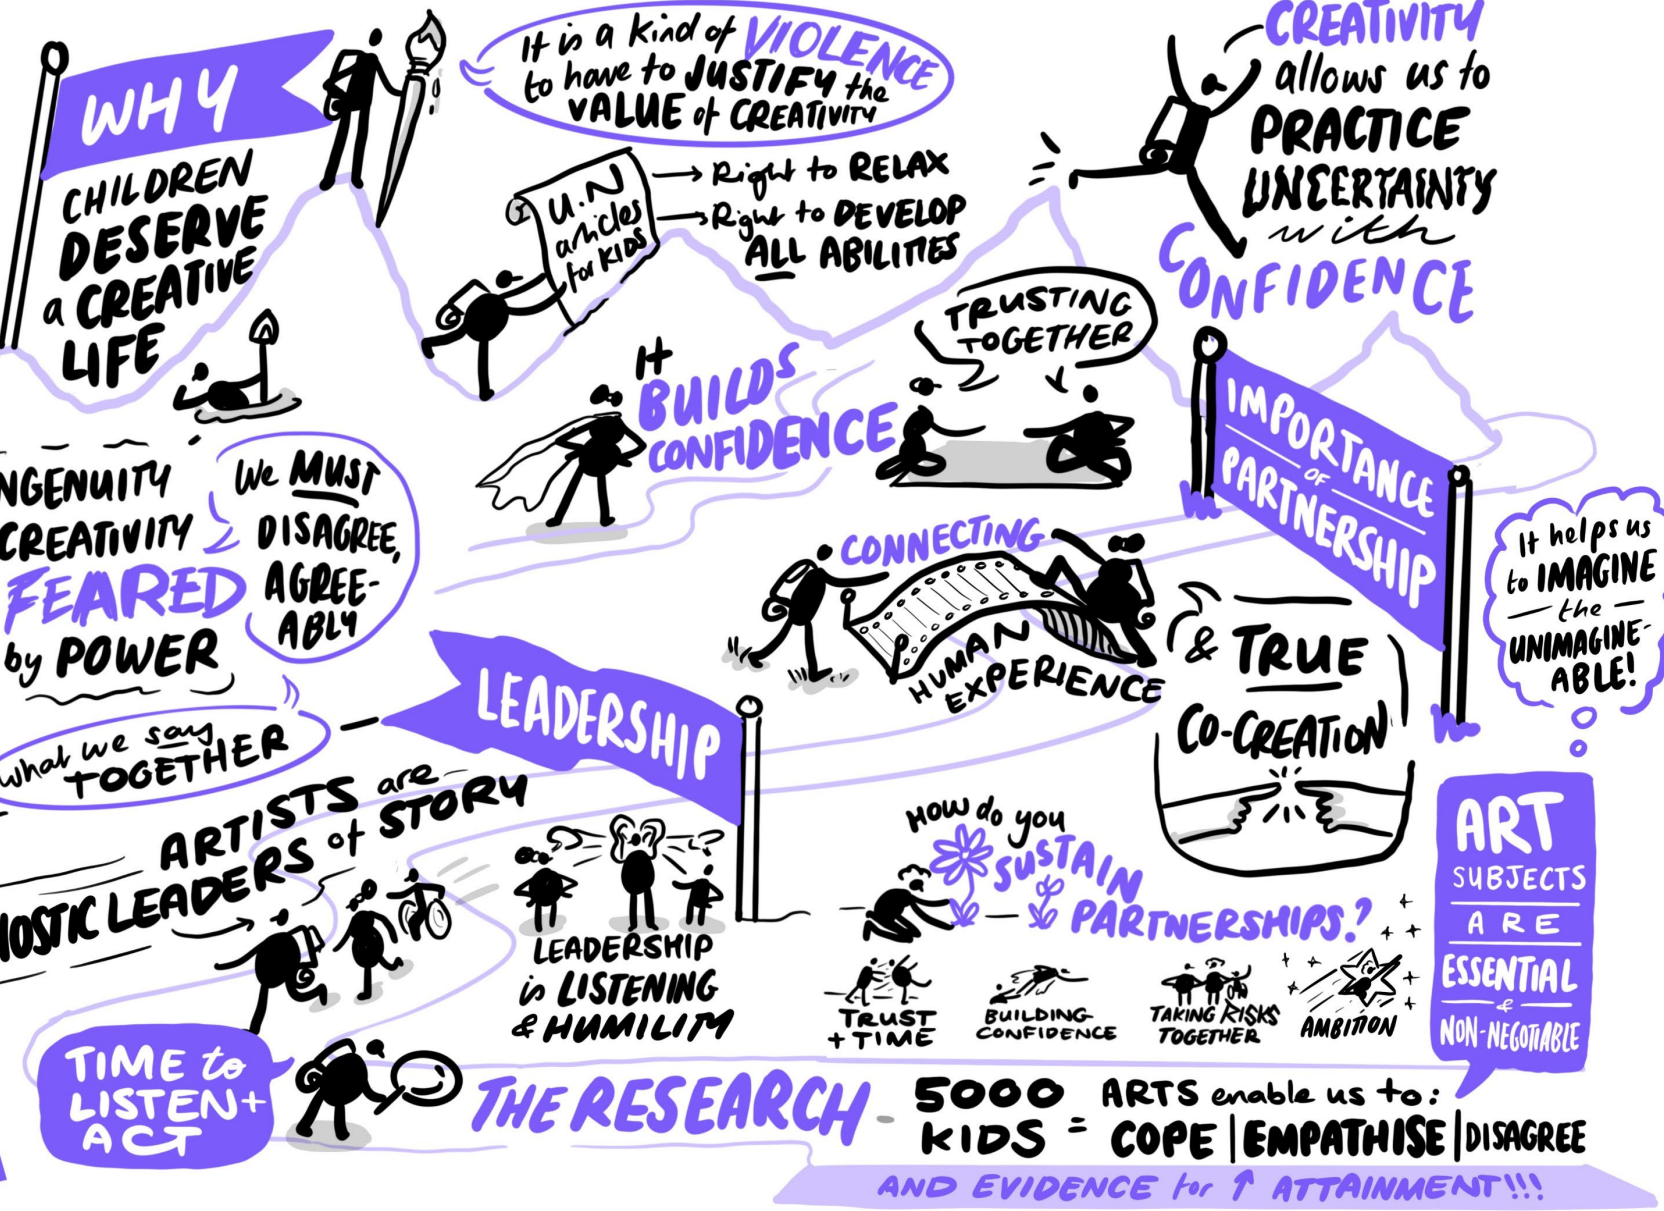 WHY
CHILDREN
DESERVE
a CREATIVE
LIFE
It is a kind of VIOLENCE
to have to JUSTIFY the
VALUE of CREATIVITY
U.N
articles
for KIDS
Right to RELAX
Right to DEVELOP
ALL ABILITIES
CREATIVITY
allows us to
PRACTICE
UNCERTAINTY
with
CONFIDENCE
It
BUILDS
CONFIDENCE
TRUSTING
TOGETHER
IMPORTANCE
OF
PARTNERSHIP
NGENUITY
CREATIVITY
FEARED
by POWER
We MUST
DISAGREE,
AGREE-
ABLY
CONNECTING
HUMAN
EXPERIENCE
& TRUE
CO-CREATION
It helps us
to IMAGINE
the
UNIMAGINE-
ABLE!
LEADERSHIP
what we say
TOGETHER
ARTISTS are
OSTIC LEADERS of STORY
LEADERSHIP
is LISTENING
& HUMILITY
HOW do you
SUSTAIN
PARTNERSHIPS?
TRUST
+ TIME
BUILDING
CONFIDENCE
TAKING RISKS
TOGETHER
AMBITION
ART
SUBJECTS
ARE
ESSENTIAL
&
NON-NEGOTIABLE
TIME to
LISTEN +
ACT
THE RESEARCH -
5000
KIDS =
ARTS enable us to:
COPE | EMPATHISE | DISAGREE
AND EVIDENCE for ↑ ATTAINMENT!!!